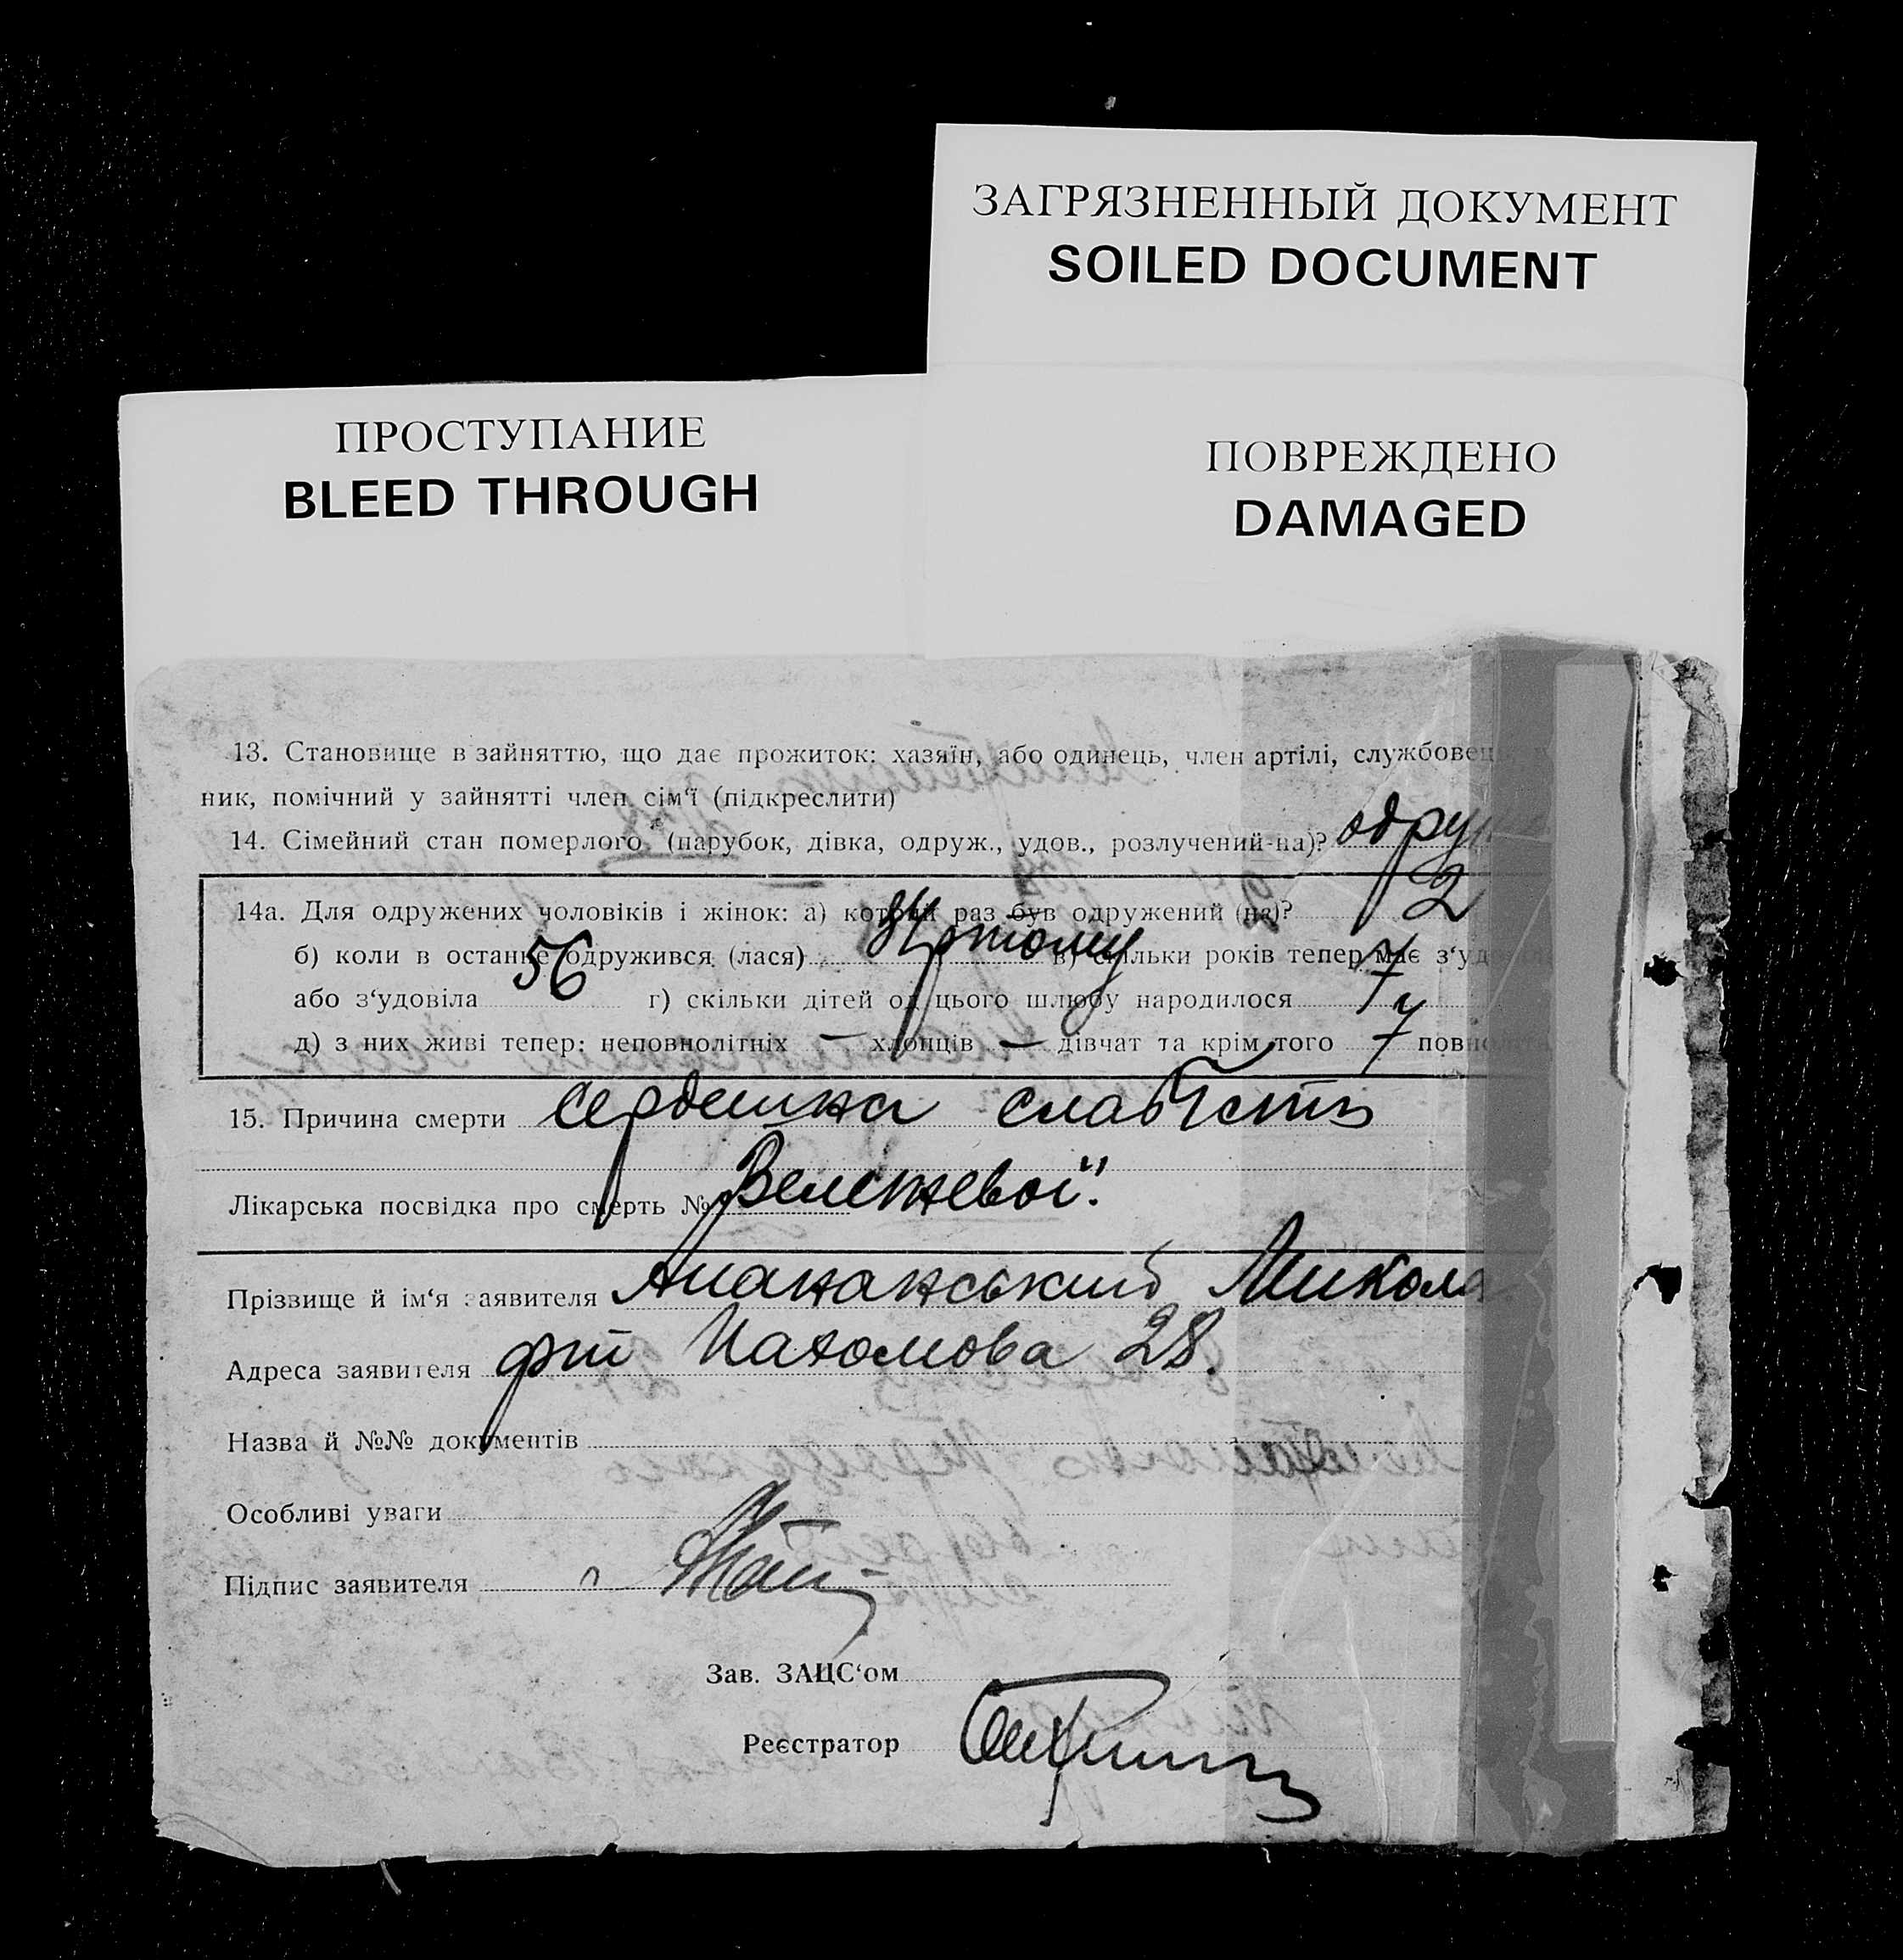 ЗАГРЯЗНЕННЫЙ ДОКУМЕНТ
SOILED DOCUMENT
ПРОСТУПАНИЕ
BLEED THROUGH
ПОВРЕЖДЕНО
DAMAGED
13. Становище в зайняттю, що дає прожиток: хазяїн, або одинець, член артілі, службовець
ник, помічний у зайнятті член сім‘ї (підкреслити)
14. Сімейний стан померлого (парубок, дівка, одруж., удов., розлучений-на)? одруж
14а. Для одружених чоловіків і жінок: а) котрий раз був одружений (на)? 2
б) коли в останнє одружився (лася) в) скільки років тепер має з‘уд
або з‘удовіла 56 г) скільки дітей од цього шлюбу народилося 7
д) з них живі тепер: неповнолітніх — хлопців — дівчат та крім того 7 повноліт
15. Причина смерти сердешна слабість
Лікарська посвідка про смерть №
Прізвище й ім‘я заявителя Микола
Адреса заявителя Пахомова 28.
Назва й №№ документів
Особливі уваги
Підпис заявителя
Зав. ЗАЦС‘ом
Реєстратор